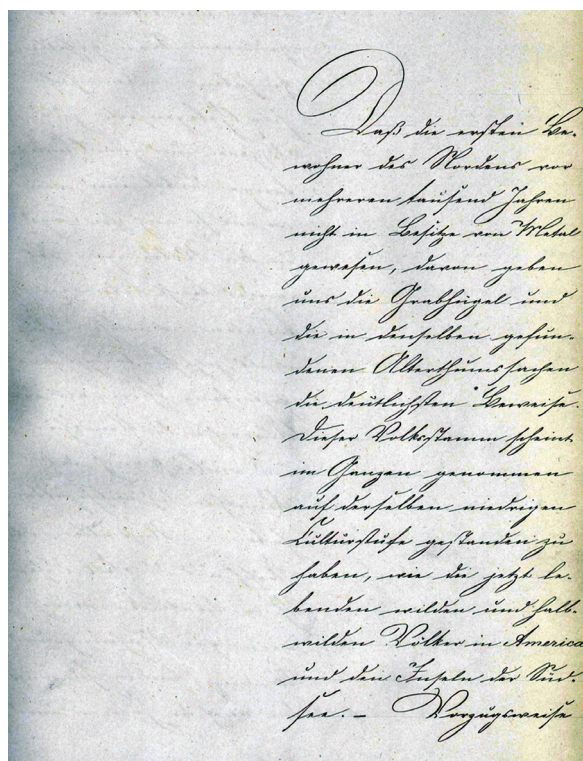 Daß die ersten Be-
wohner des Nordens vor
mehreren tausend Jahren
nicht in Besitze von Metal
gewesen, davon geben
uns die Grabhügel und
die in denselben gefun-
denen Alterthumssachen
die deutlichsten Beweise.
Dieser Volksstamm scheint
im Ganzen genommen
auf derselben niedrigen
Culturstufe gestanden zu
haben, wie die jetzt le-
benden wilden und halb-
wilden Völker in America
und den Inseln der Süd-
see. – Vorzugsweise